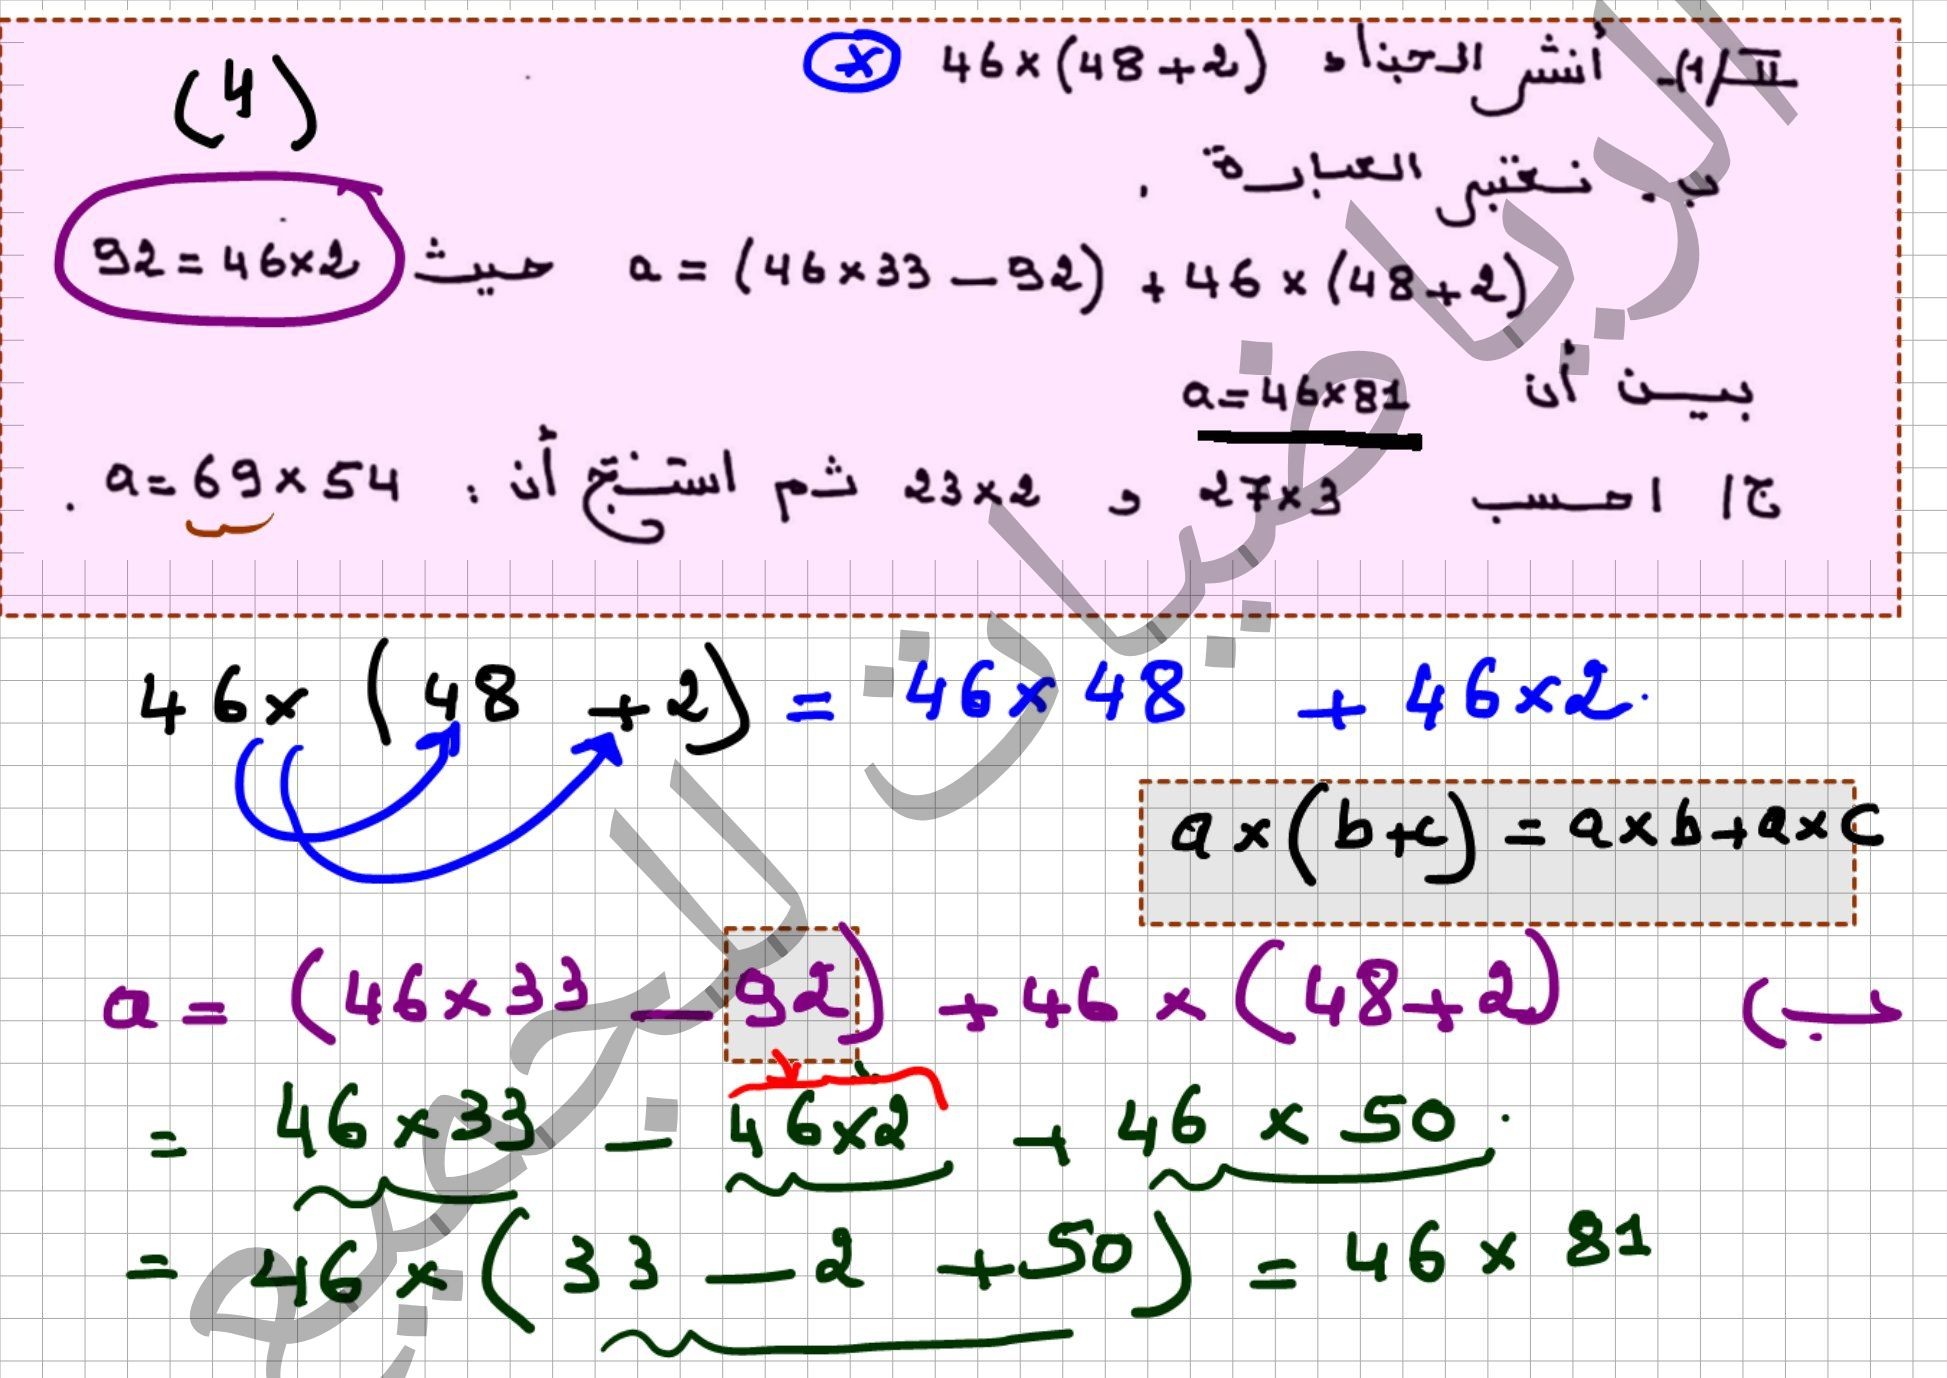 (4)
II/1)- أنشر الجذاء 46×(48+2) *
ب. نعتبر العبارة .
a = (46×33 − 92) + 46 × (48+2) حيث 92 = 46×2
بين أن a=46×81
ج/ احسب 27×3 و 23×2 ثم استنتج أن : a=69×54 .
46× (48 +2) = 46×48 + 46×2.
a×(b+c) = a×b+a×c
ب) a = (46×33 − 92) + 46 × (48+2)
= 46×33 − 46×2 + 46 × 50.
= 46×(33 − 2 +50) = 46 × 81